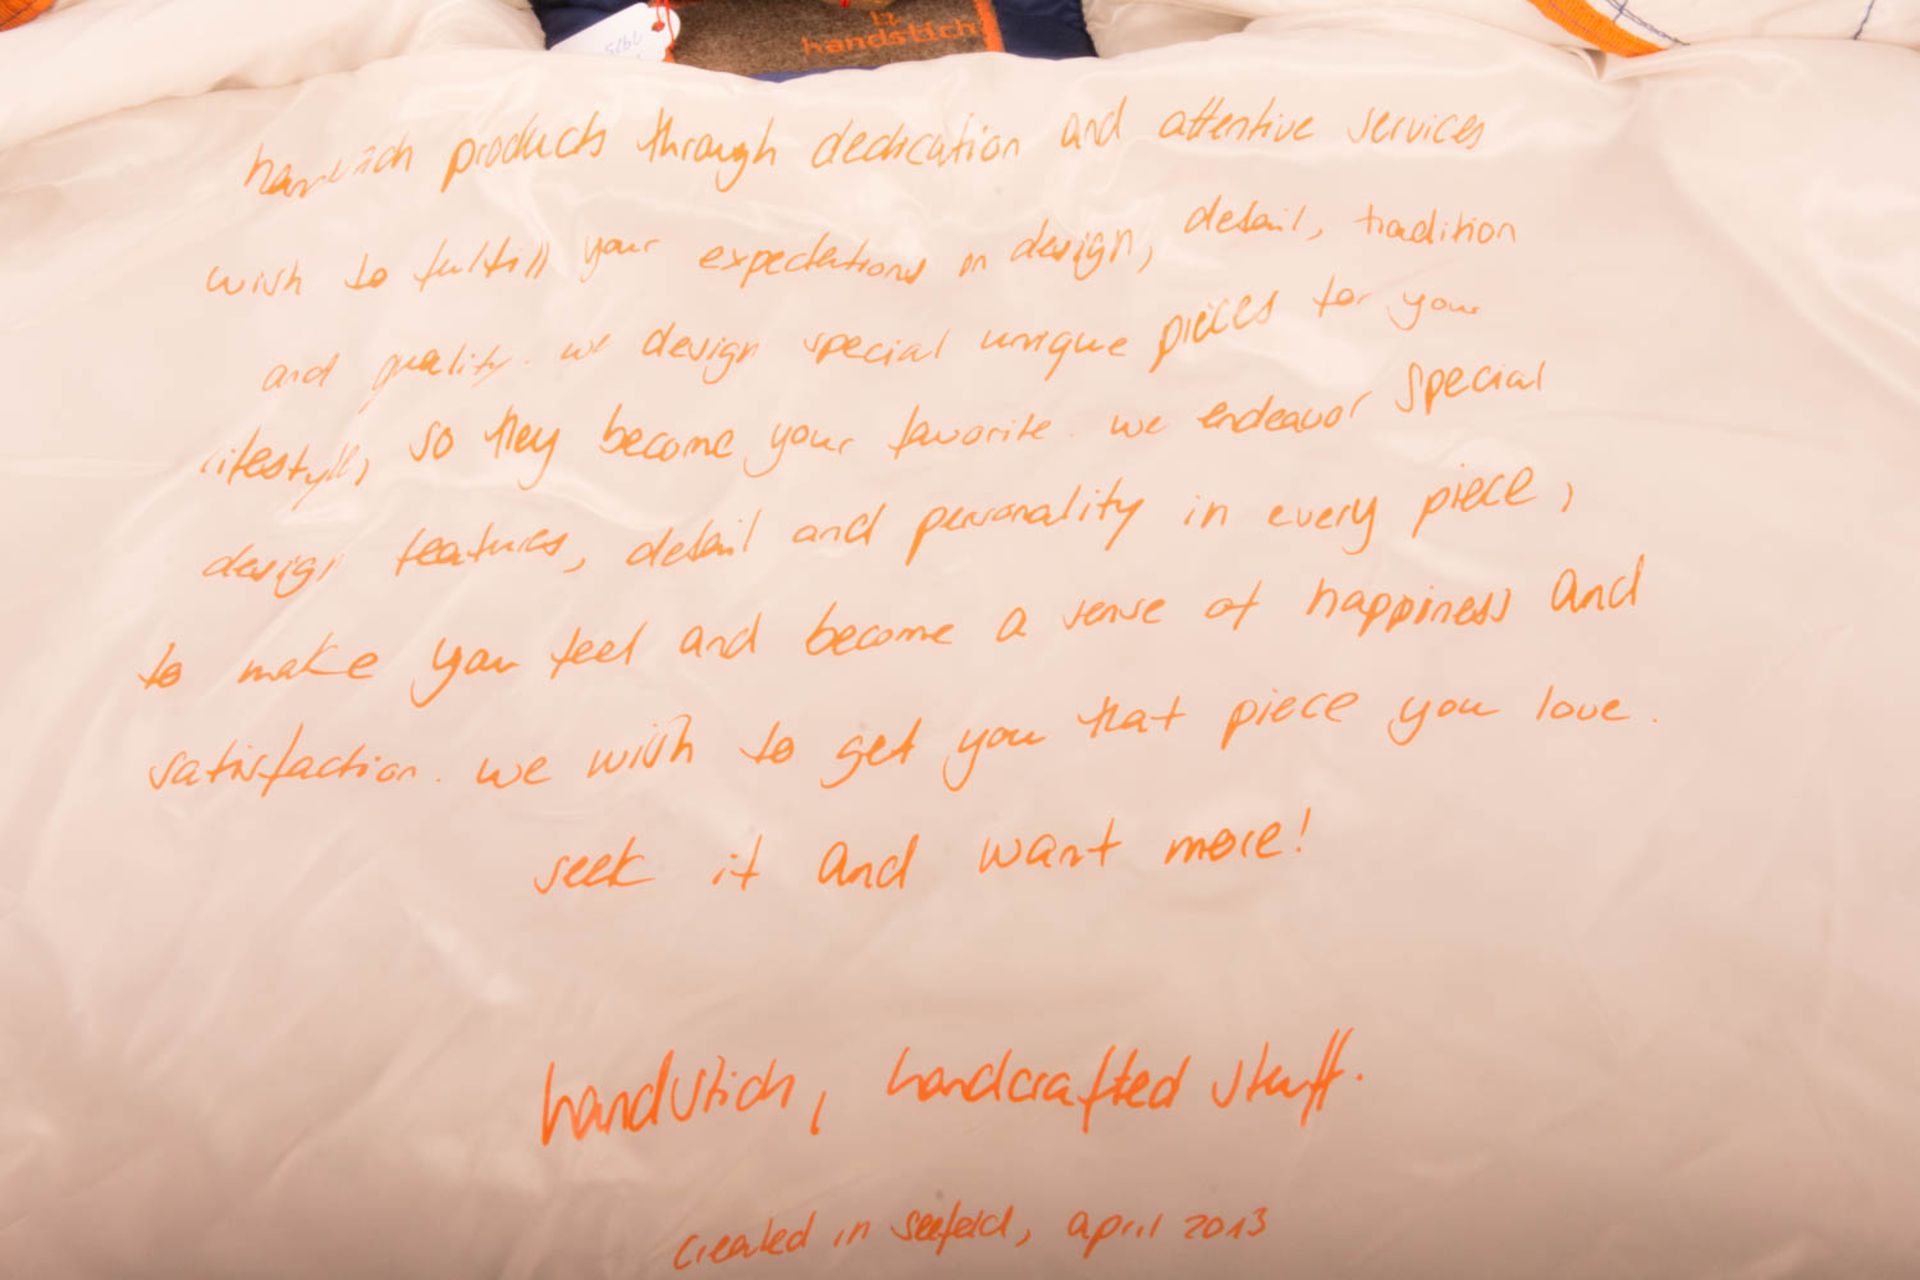 handstich
handstich products through dedication and attentive services
wish to fulfill your expectations on design, detail, tradition
and quality. we design special unique pieces for your
lifestyle, so they become your favorite. we endeavor special
design features, detail and personality in every piece,
to make you feel and become a sense of happiness and
satisfaction. we wish to get you that piece you love.
seek it and want more!
handstich, handcrafted stuff.
created in seefeld, april 2013